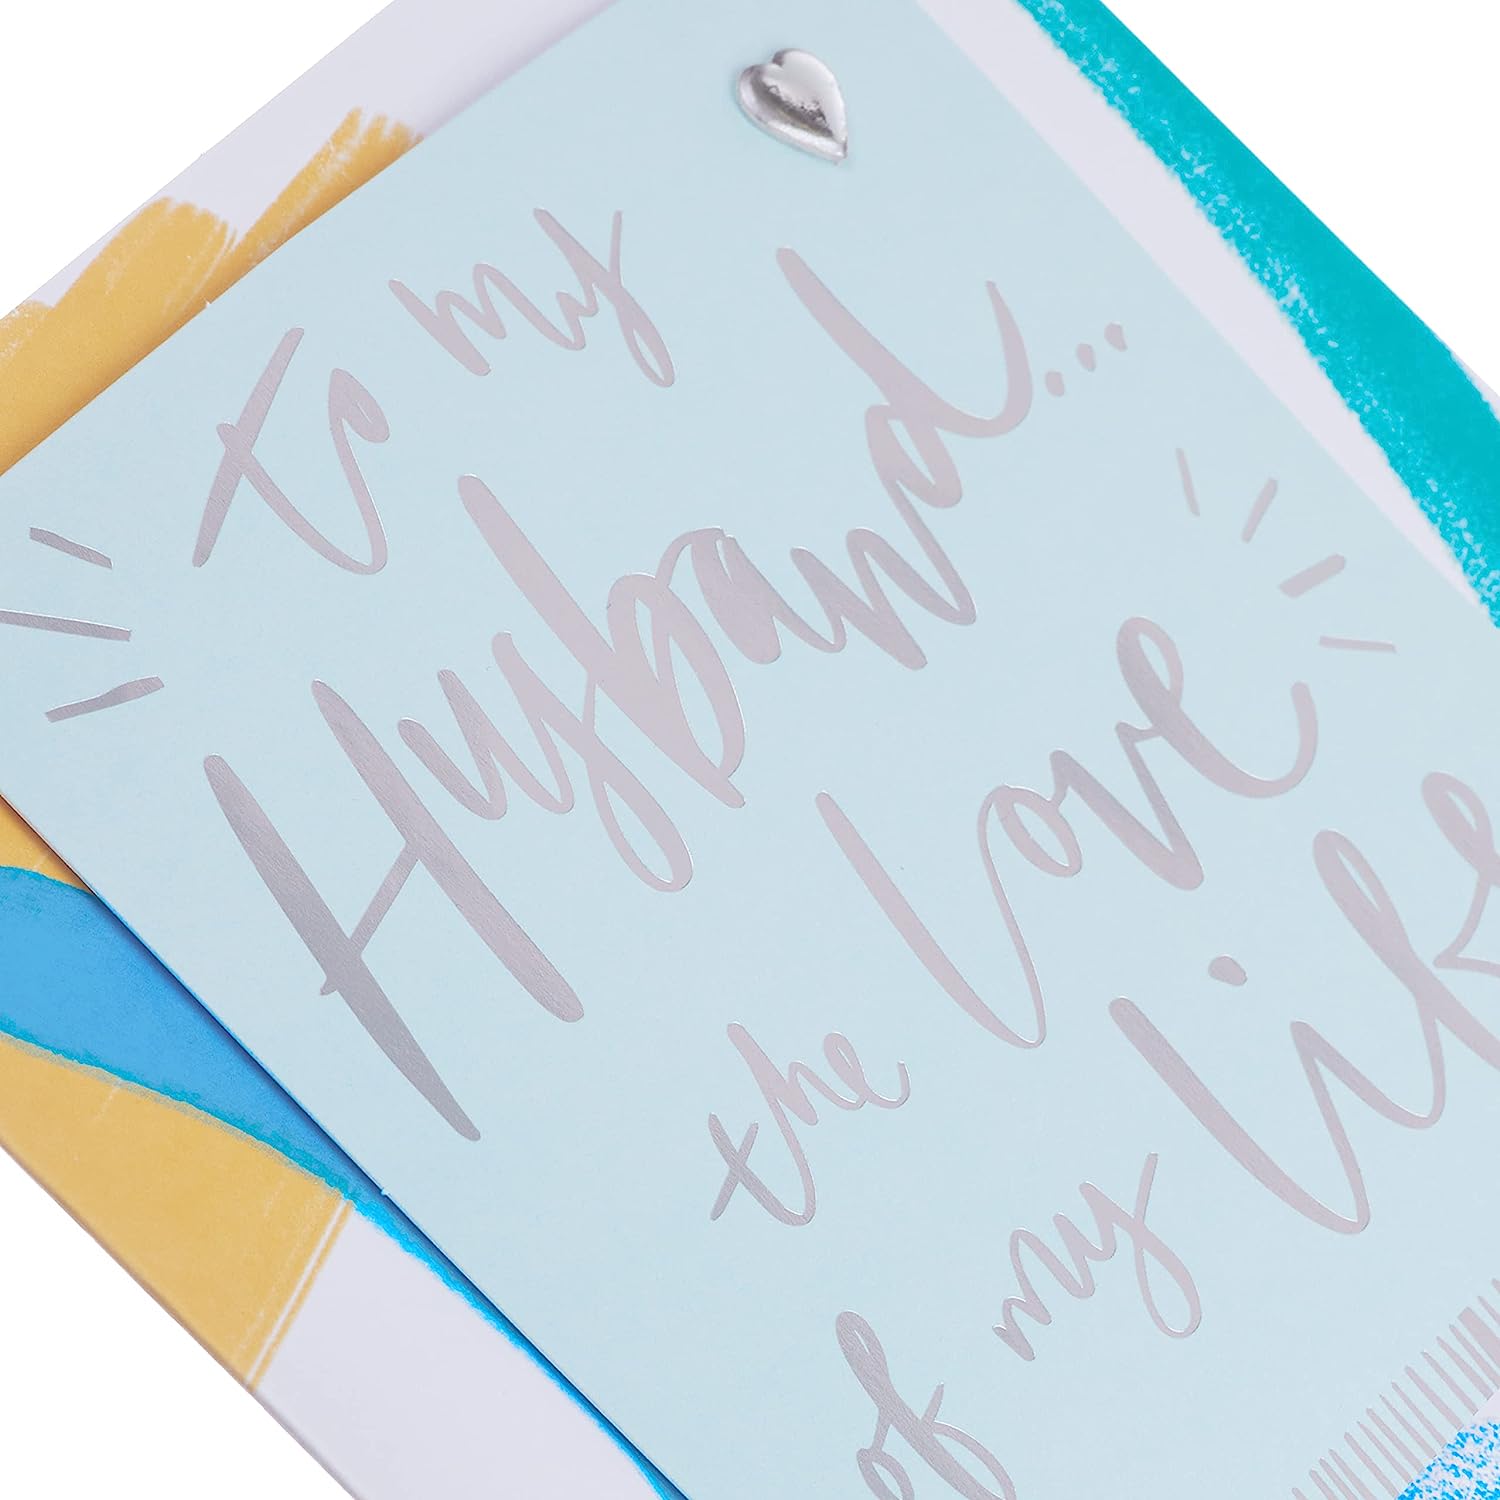 to my
Husband...
the Love
of my Life